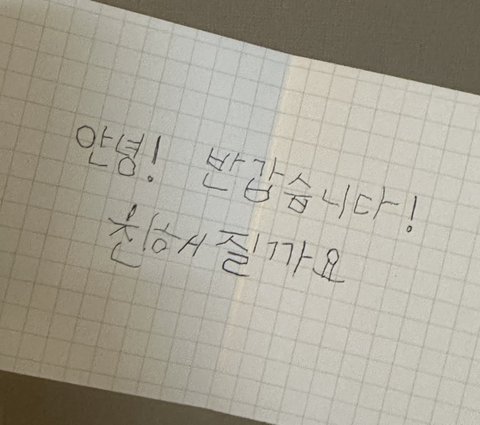 안녕! 반갑습니다!
친하서질까요